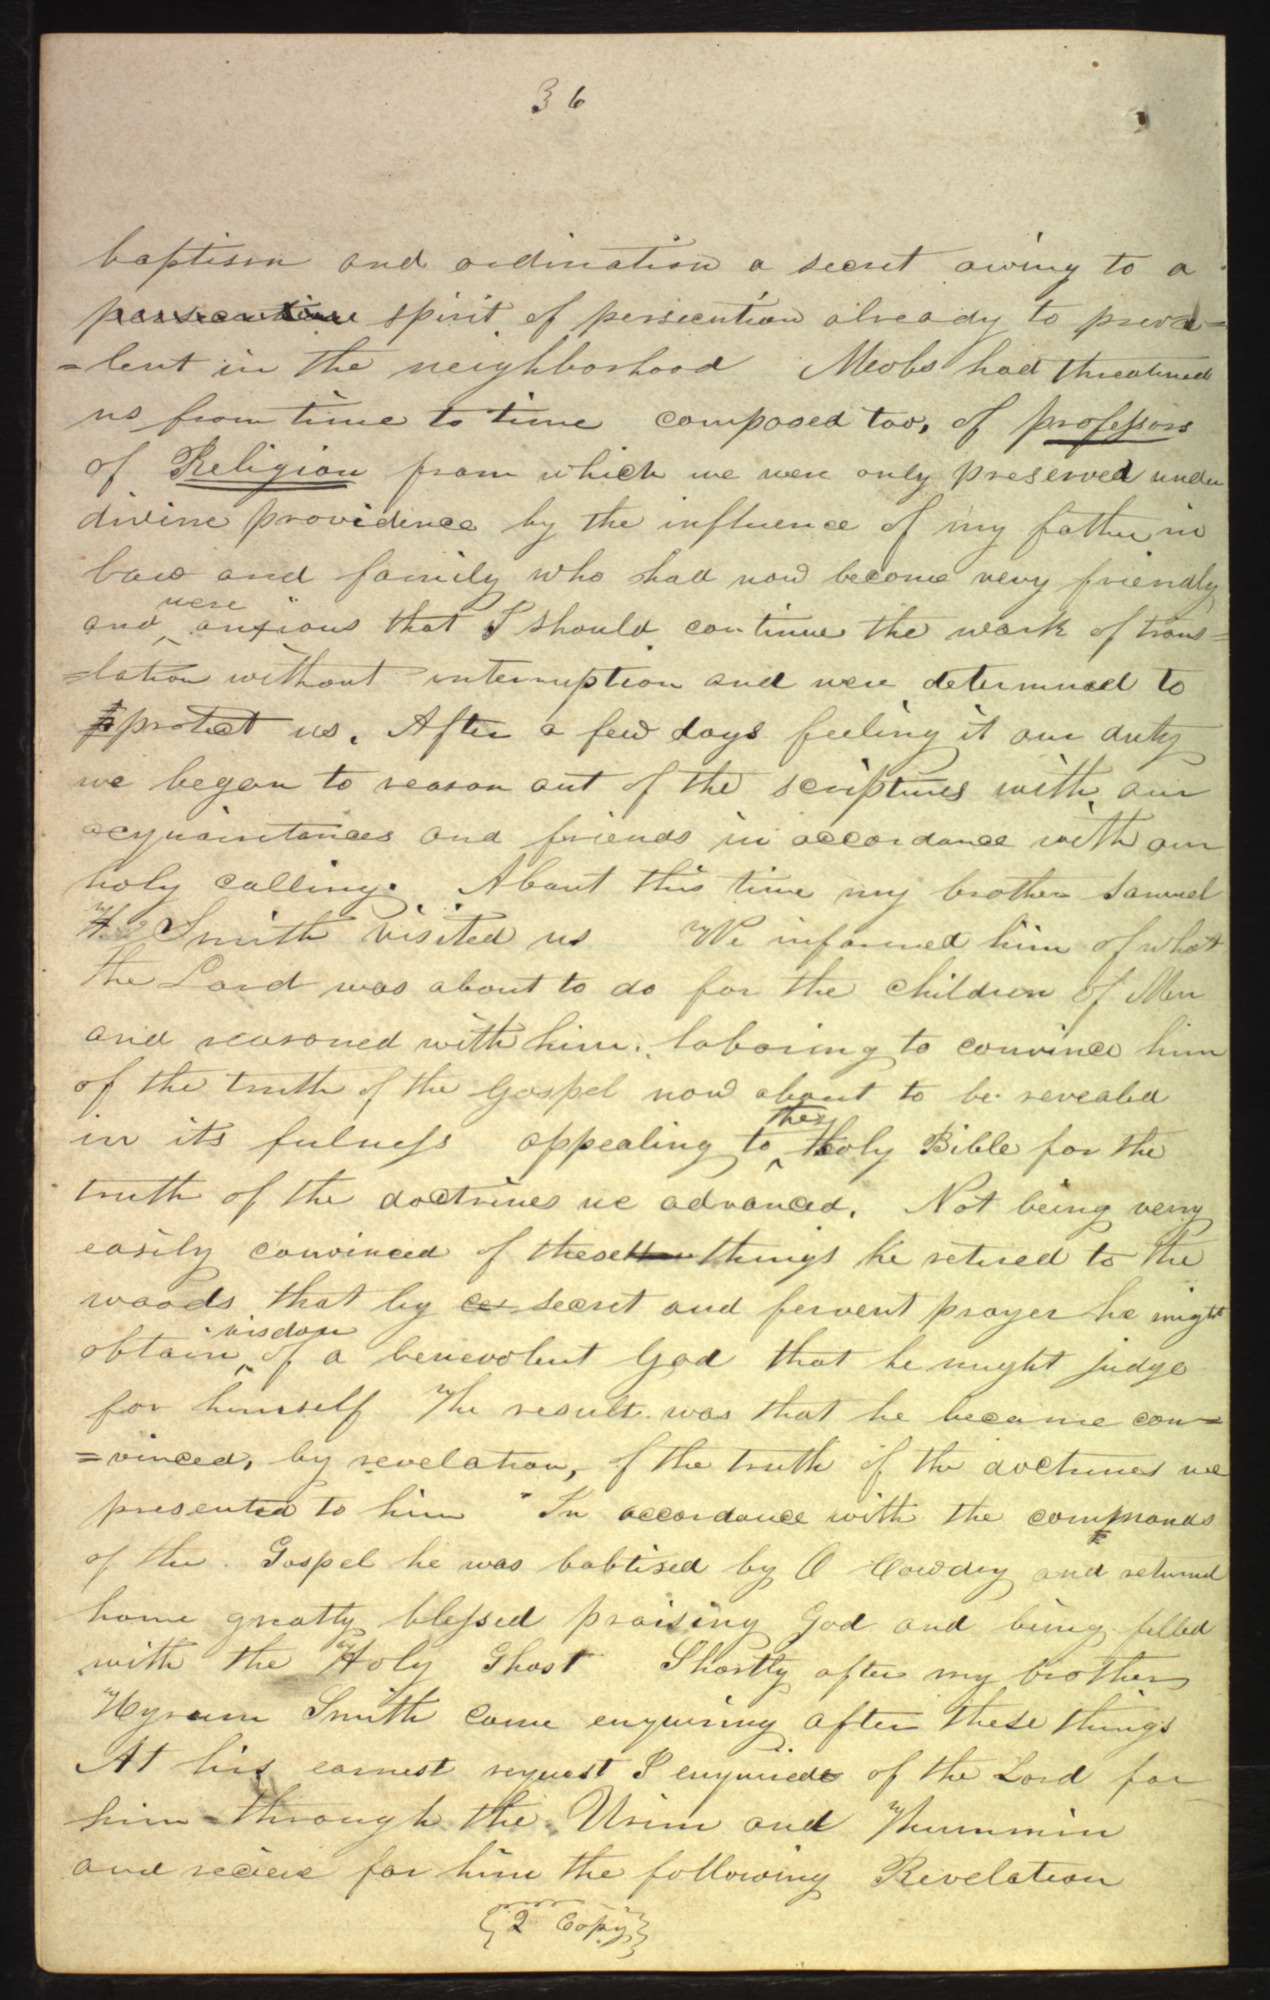 36
baptism and ordination a secret owing to a
persecutive spirit of persecution already to preva=
=lent in the neighborhood Meobs had threatened
us from time to time composed too, of professors
of Religion from which we were only preserved under
divine providence by the influence of my father in
law and family who had now become very friendly
and were anxious that I should continue the work of trans=
=lation without interruption and were determined to
protect us. After a few days feeling it our duty
we began to reason out of the scriptures with our
acquaintances and friends in accordance with our
holy calling. About this time my brother Samuel
H. Smith visited us We informed him of what
the Lord was about to do for the children of Men
and reasoned with him. laboring to convince him
of the truth of the Gospel now about to be revealed
in its fulness appealing to the holy Bible for the
truth of the doctrines we advanced. Not being very
easily convinced of these things he retired to the
woods that by secret and fervent prayer he might
obtain wisdom of a benevolent God that he might judge
for himself The result was that he became con=
=vinced, by revelation, of the truth of the doctrines we
presented to him In accordance with the commands
of the Gospel he was babtised by O Cowdey and returned
home greatly blessed praising God and being filled
with the Holy Ghost Shortly after my brother
Hyrum Smith came enquiring after these things
At his earnest request I enquired of the Lord for
him through the Urim and Thummin
and recieve for him the following Revelation
{2 Copy}